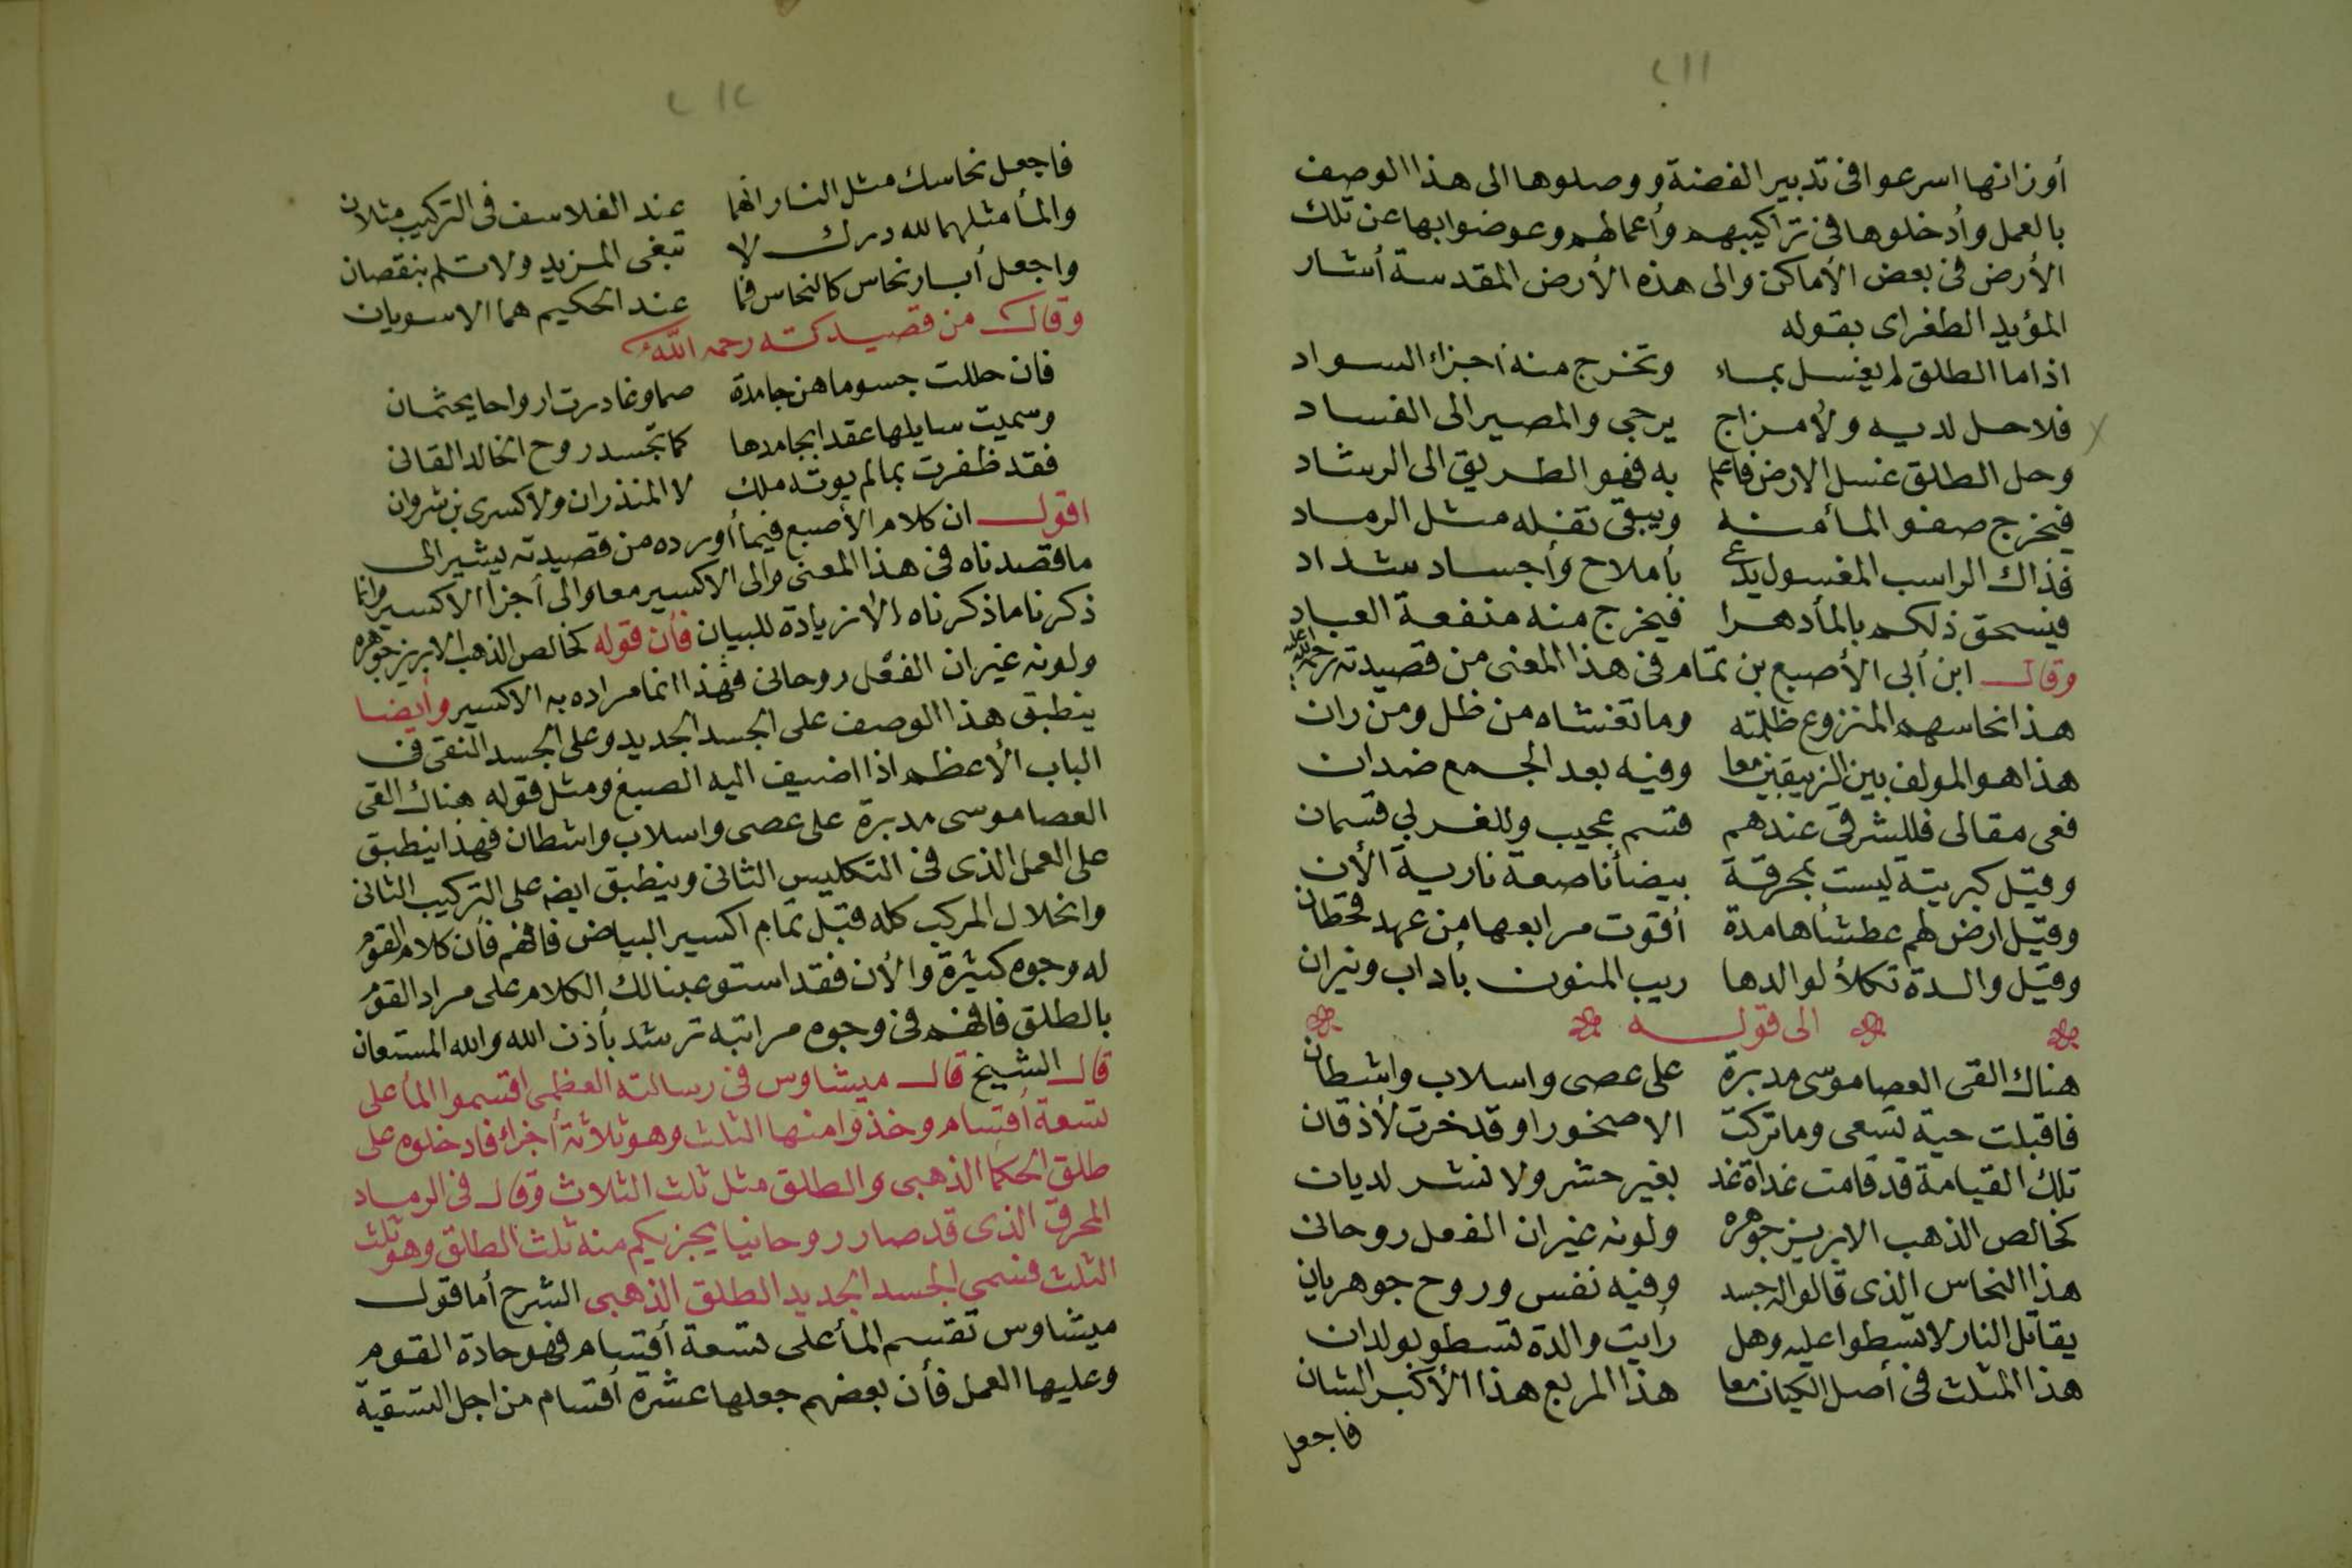 ٢١١
أوزانها اسرعوا فى تدبير الفضة ووصلوها الى هذا الوصف
بالعمل وأدخلوها فى تراكيبهم وأعمالهم وعوضوا بها عن تلك
الأرض فى بعض الأماكن والى هذه الأرض المقدسة أشار
المؤيد الطغراى بقوله
اذا ما الطلق لم يغسل بماء وتخرج منه اجزاء السواد
فلا حل لديه ولا مزاج يرجى والمصير الى الفساد
وحل الطلق غسل الارض فاعلم به فهو الطريق الى الرشاد
فيخرج صفو الماء منه ويبقى ثفله مثل الرماد
فذاك الراسب المغسول يدعى بأملاح وأجساد شداد
فيسحق ذلكم بالماء دهرا فيخرج منه منفعة العباد
وقال ابن أبى الأصبع بن تمام فى هذا المعنى من قصيدته رحمه الله
هذا نحاسهم المنزوع ظلمته وما تغشاه من ظل ومن ران
هذا هو المولف بين الزيبقين معا وفيه بعد الجمع ضدان
فعى مقالى فللشرقى عندهم قسم عجيب وللغربي قسمان
وقيل كبريتة ليست بمحرقة بيضأ ناصعة نارية الأن
وقيل ارض لهم عطشأ هامدة أقوت مرابعها من عهد قحطان
وقيل والدة تكلأ لوالدها ريب المنون بأداب ونيران
الى قوله
هناك القى العصا موسى مدبرة على عصى واسلاب واشطان
فاقبلت حية تسعى وما تركت الا صخورا وقد خرت لأذقان
تلك القيامة قد قامت غداة غد بغير حشر ولا نشر لديان
كخالص الذهب الابريز جوهره ولونه غيران الفعل روحانى
هذا النحاس الذى قالوا له جسد وفيه نفس وروح جوهريان
يقاتل النار لا تسطوا عليه وهل رأيت والدة تسطو بولدان
هذا المثلث فى أصل الكيان معا هذا المربع هذا الأكبر الشان
فاجعل
٢١٢
فاجعل نحاسك مثل النار انهما عند الفلاسف فى التركيب مثلان
والمأ مثلهما لله درك لا تبغى المزيد ولا تسلم بنقصان
واجعل أبار نحاس كالنحاس فما عند الحكيم هما الا سويان
وقال من قصيدته رحمه الله
فان حللت جسوما هن جامدة صما وغادرت ارواحا بجثمان
وسميت سايلها عقدا بجامدها كما تجسد روح الخالد القانى
فقد ظفرت بمالم يوته ملك لا المنذران ولا كسرى بن شروان
اقول ان كلام الأصبع فيما أورده من قصيدته يشير الى
ما قصدناه فى هذا المعنى والى الاكسير معا والى أجزا الاكسير وانما
ذكرنا ما ذكرناه الا زيادة للبيان فأن قوله كخالص الذهب الابريز جوهره
ولونه غيران الفعل روحانى فهذا انما مراده به الاكسير وأيضا
ينطبق هذا الوصف على الجسد الجديد وعلى الجسد النقى فى
الباب الأعظم اذا اضيف اليه الصبغ ومثل قوله هناك القى
العصا موسى مدبرة على عصى واسلاب واشطان فهذا ينطبق
على العمل الذى فى التكليس الثانى وينطبق ايضه على التركيب الثانى
وانحلال المركب كله قبل تمام اكسير البياض فافهم فأن كلام القوم
له وجوه كثيرة والأن فقد استوعبنا لك الكلام على مراد القوم
بالطلق فافهم فى وجوه مراتبه ترشد بأذن الله والله المستعان
قال الشيخ قال ميشاوس فى رسالته العظمى اقسموا المأ على
تسعة أقسام وخذوا منها الثلث وهو ثلاثة أجزاء فادخلوه على
طلق الحكما الذهبى والطلق مثل ثلث الثلاث وقال فى الرماد
المحرق الذى قد صار روحانيا يجزيكم منه ثلث الطلق وهو ثلث
الثلث فسمى الجسد الجديد الطلق الذهبى الشرح أما قول
ميشاوس تقسم المأ على تسعة أقسام فهو جادة القوم
وعليها العمل فأن بعضهم جعلها عشرة أقسام من اجل التسقية